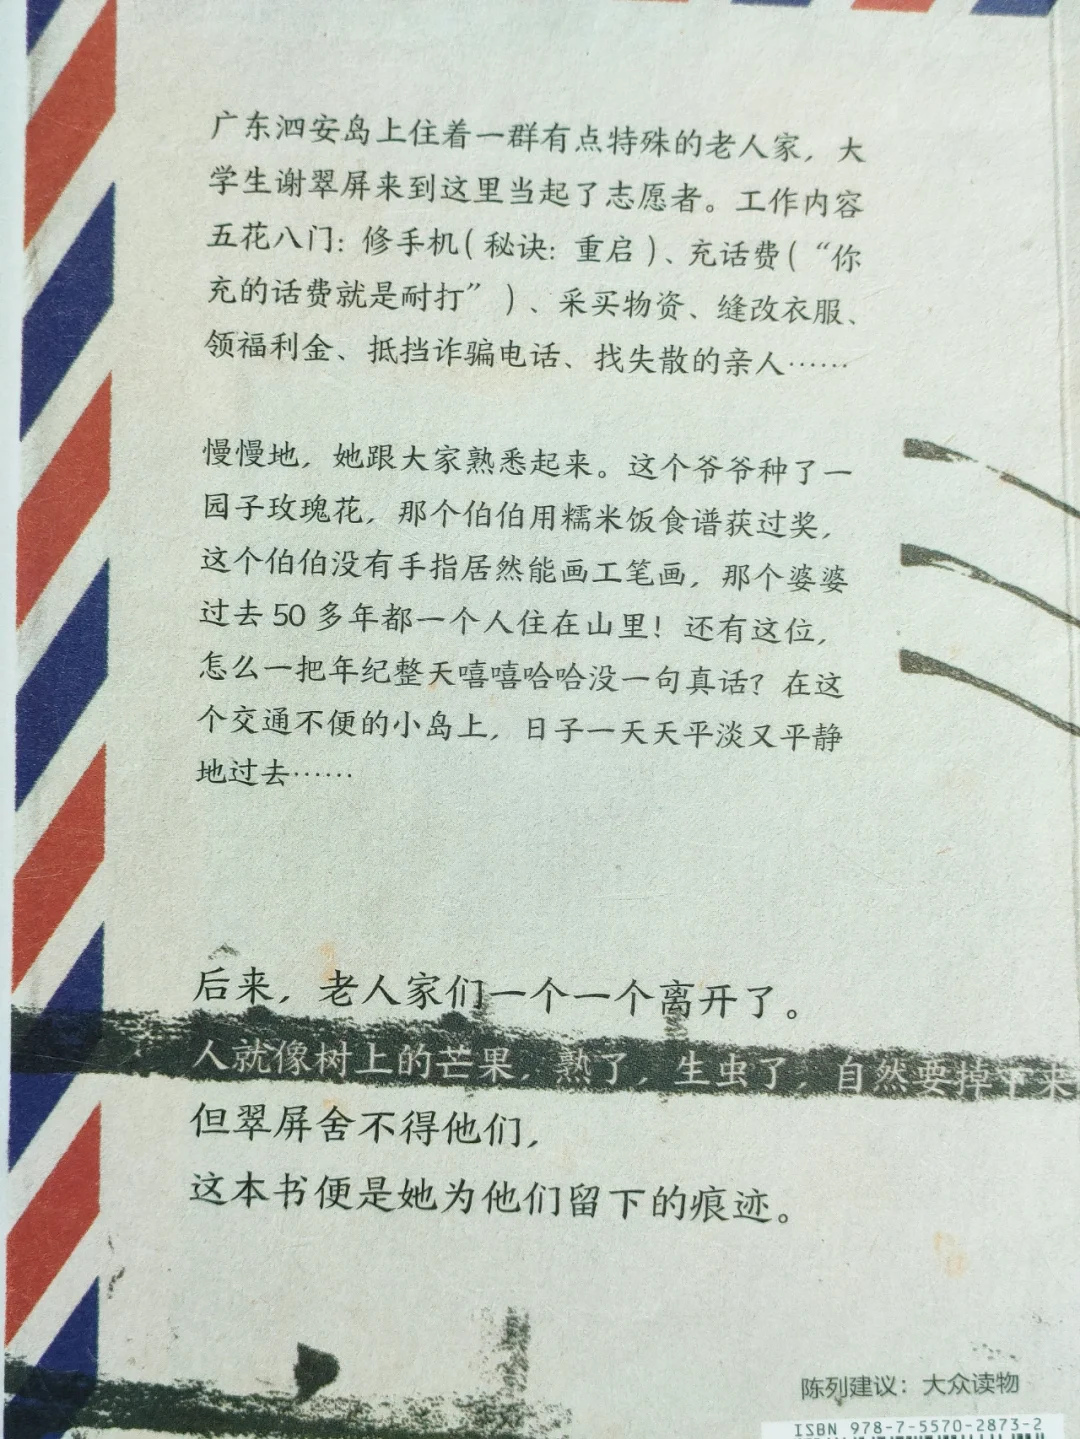 广东泗安岛上住着一群有点特殊的老人家，大
学生谢翠屏来到这里当起了志愿者。工作内容
五花八门：修手机(秘诀：重启)、充话费(“你
充的话费就是耐打”)、采买物资、缝改衣服、
领福利金、抵挡诈骗电话、找失散的亲人……
慢慢地，她跟大家熟悉起来。这个爷爷种了一
园子玫瑰花，那个伯伯用糯米饭食谱获过奖，
这个伯伯没有手指居然能画工笔画，那个婆婆
过去50多年都一个人住在山里！还有这位，
怎么一把年纪整天嘻嘻哈哈没一句真话？在这
个交通不便的小岛上，日子一天天平淡又平静
地过去……
后来，老人家们一个一个离开了。
人就像树上的芒果，熟了，生虫了，自然要掉下来
但翠屏舍不得他们，
这本书便是她为他们留下的痕迹。
陈列建议：大众读物
ISBN 978-7-5570-2873-2